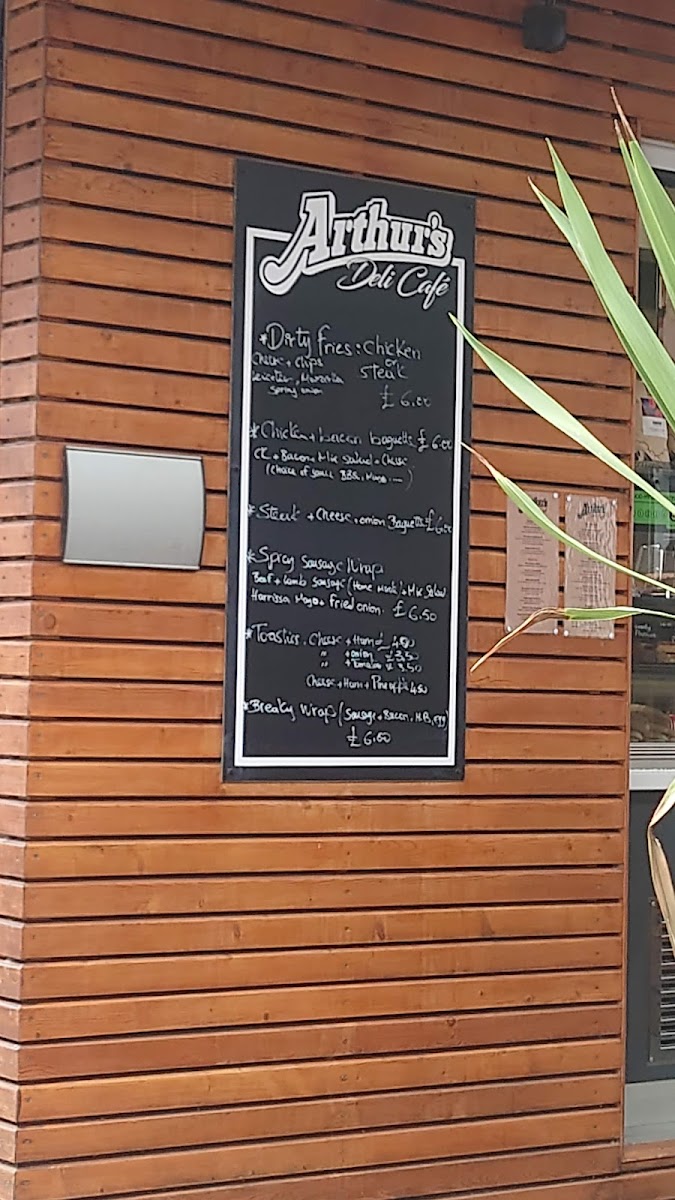 Arthur's
Deli Café
*Dirty fries: Chicken
or
Steak
Cheese + Chips
spring onion
£6.00
*Chicken + bacon baguette £6.00
CK + Bacon Mix Salad + Cheese
(Choice of sauce BBQ, Mayo ---)
*Steak + Cheese + onion Baguette £6.00
*Spicy Sausage Wrap
Beef + Lamb Sausage (Home Made) + Mix Salad
Harrissa Mayo + Fried onion. £6.50
*Toasties. Cheese + Ham £4.00
" + onion £3.50
" + Tomato £3.50
Cheese + Ham + Pineapple 4.50
*Breaky Wrap (Sausage + Bacon, H.B, egg)
£6.00